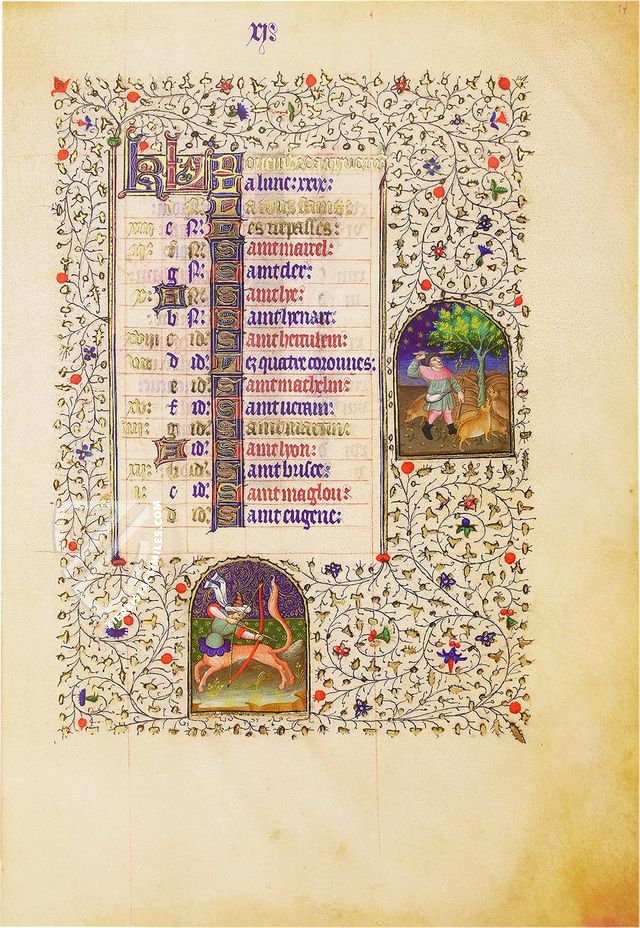 xj
17
KL Novembre a xxx jours
La lune: xxix:
d N. La tous sains:
xiii e N. Les trepasses:
ij f N. Saint marcel:
g N. Saint cler:
x A N. Saint lye:
b N. Saint lyenart:
xviii c id: Saint herculem:
vii d id: Les quatre coronnes:
e id: Saint machelm:
xv f id: Saint verain:
iiii g id: Saint martin:
A id: Saint lyon:
xii b id: Saint busce:
i c id: Saint maglou:
d id: Saint eugene: